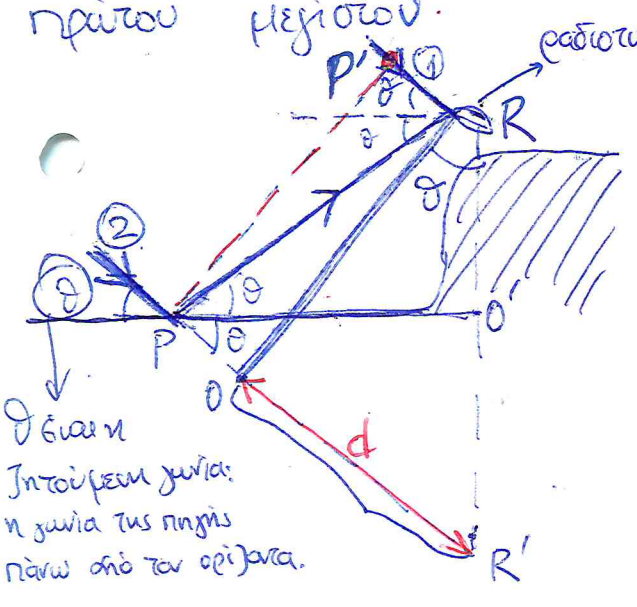 πρώτου μεγίστου.
P' ① 
θ
R
θ
θ
②
θ
θ
P
θ
O'
O
d
R'
θ είναι η
ζητούμενη γωνία:
η γωνία της πηγής
πάνω από τον ορίζοντα.